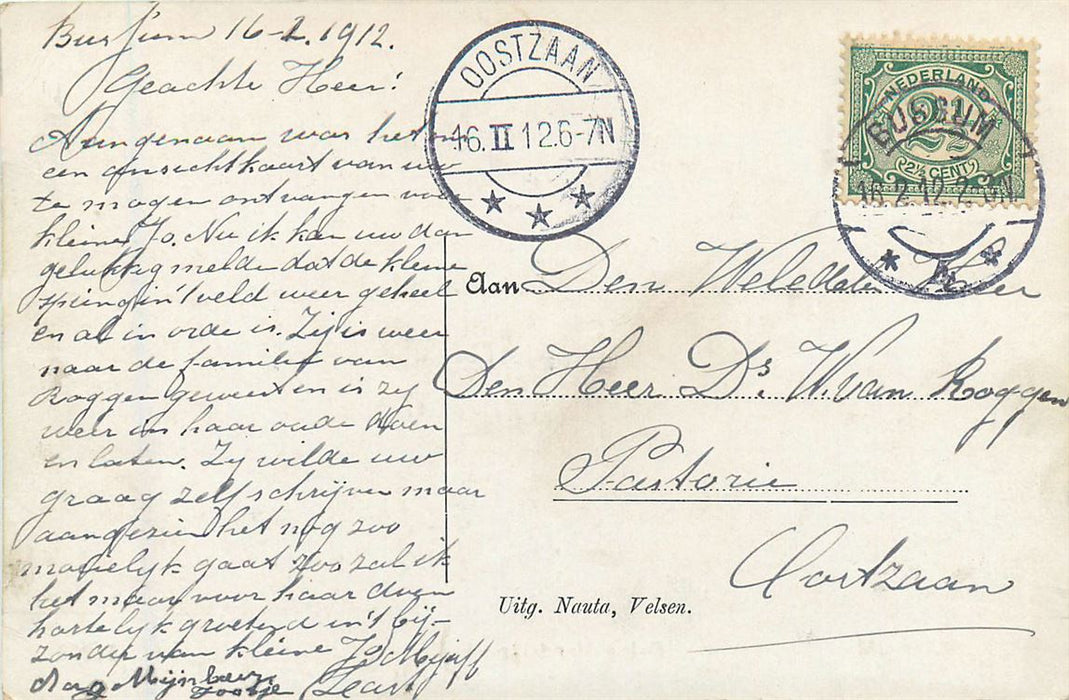 Bussum 16-2.1912.
Geachte Heer!
Aangenaam was het om
een ansichtkaart van uw
te mogen ontvangen van
kleine Jo. Nu ik kan uw dan
gelukkig melde dat de kleine
spring in 't veld weer geheel
en al in orde is. Zij is weer
naar de familie van
Roggen geweest en is zij
weer in haar oude doen
en laten. Zij wilde uw
graag zelf schrijven maar
aangezien het nog zoo
moeielijk gaat zoo zal ik
het maar voor haar doen
hartelijk groetend in't bij-
zonder van kleine Jo
dag Mijnheer
Zootje
OOSTZAAN
16.II 12.6-7N
NEDERLAND
2½
2½ CENT
BUSSUM
16.2.12.2-3N
Aan Den Weledelen Heer
Den Heer Ds. W. van Roggen
Pastorie
Oostzaan
Uitg. Nauta, Velsen.